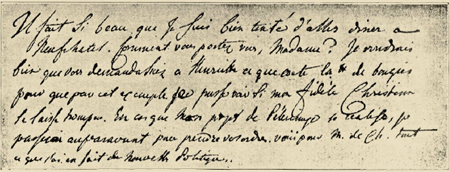 Il fait si beau que je suis bien tenté d'aller diner a
Neufchatel. Comment vous portez vous, Madame? Je voudrois
bien que vous demandassiez a Henriette ce que coute la lt de bougies
pour que par cet exemple je puisse voir si ma fidele Christine
se laisse tromper. En cas que mon projet de Pelerinage se realise, je
passerai auparavant pour prendre vos ordres. voici pour M. de Ch. tout
ce que j'ai en fait de Nouvelle Politique.